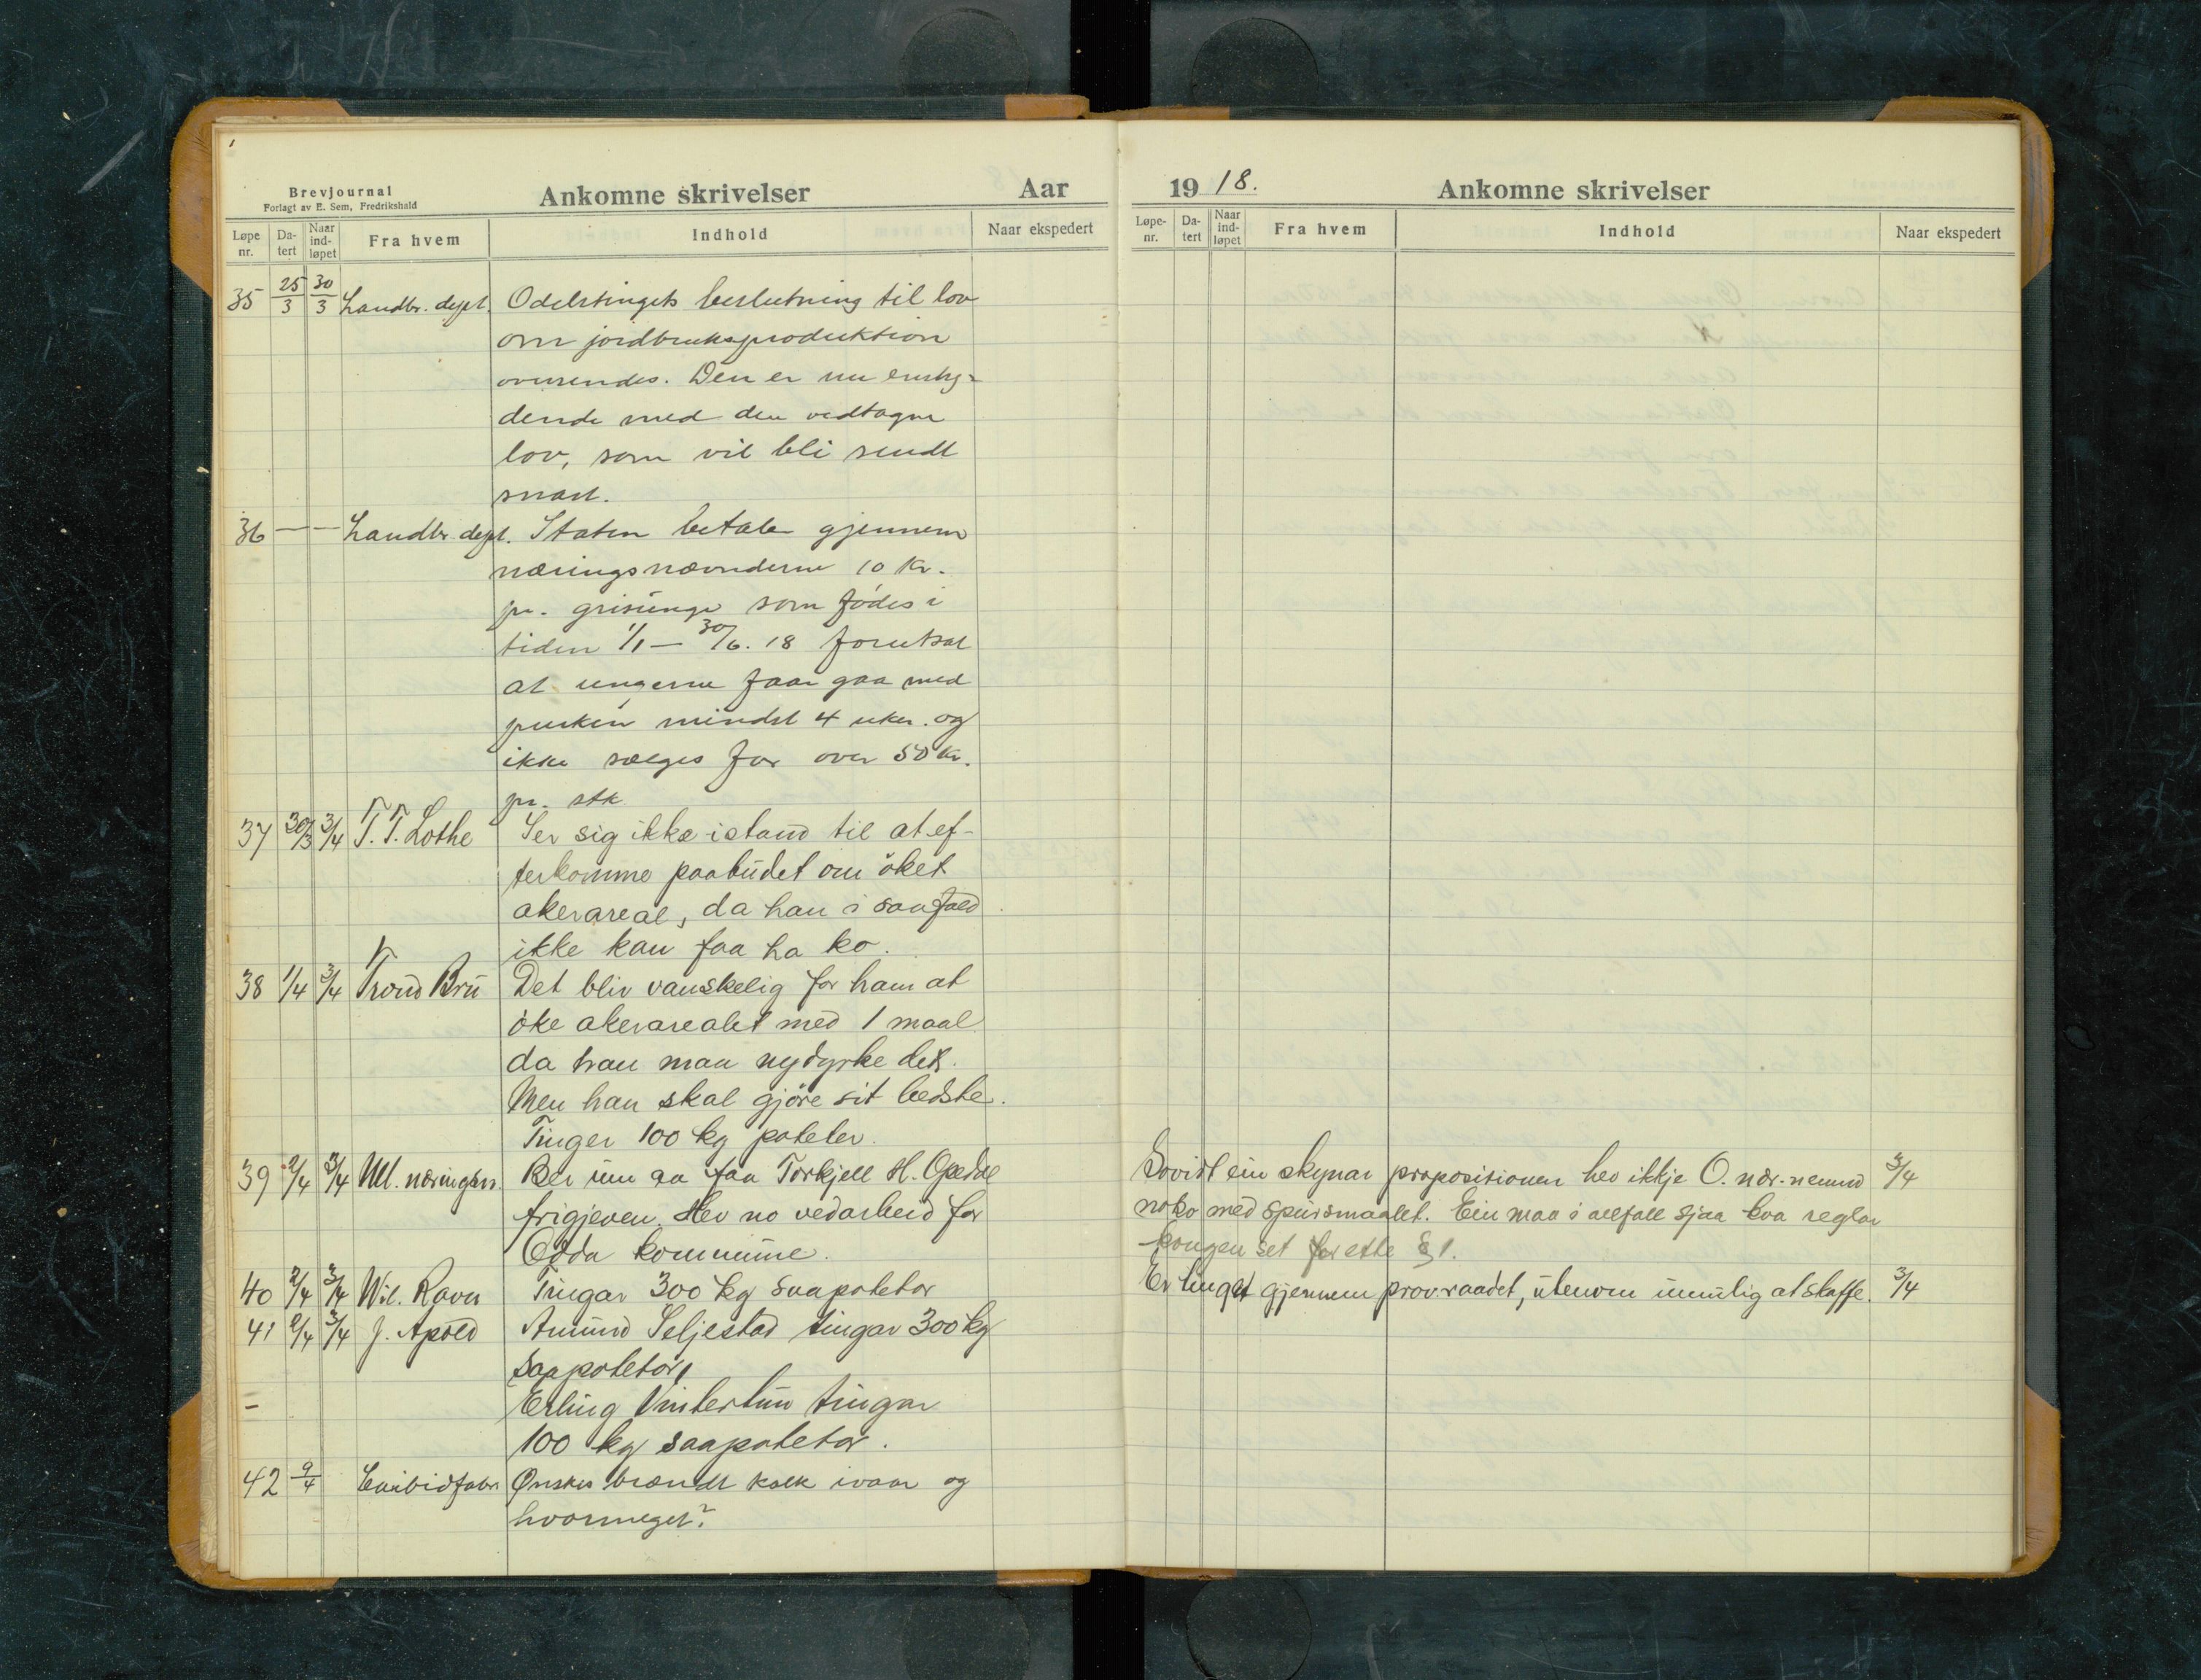 Brevjournal
Forlagt av E. Sem, Fredrikshald
Ankomne skrivelser
Aar
Løpe nr.
Da-tert
Naar ind-løpet
Fra hvem
Indhold
Naar ekspedert
35 25/3 30/3 Landbr. dept. Odelstingets beslutning til lov
om jordbruksproduktion
oversendes. Den er nu enstyd-
dende med den vedtagne
lov, som vil bli sendt
snart.
36 — — Landbr. dept. Staten betaler gjennem
næringsnævnderne 10 kr.
pr. grisunge som födes i
tiden 1/1 — 30/6. 18 forutsat
at ungerne faar gaa med
purken mindst 4 uker. og
ikke sælges for over 50 kr.
pr. stk
37 30/3 3/4 T. T. Lothe Ser sig ikke istand til at ef-
terkomme paabudet om öket
akerareal, da han i saafald
ikke kan faa ha ko.
38 1/4 3/4 Trond Bru Det bliv vanskelig for ham at
öke akerarealet med 1 maal
da han maa nydyrke det.
Men han skal gjöre sit bedste.
Tinger 100 kg poteter.
39 2/4 3/4 Ull. næringsn. Ber um aa faa Torkjell H. Opedal
frigjeven. Hev no vedarbeid for
Odda kommune.
40 2/4 3/4 Wil. Ravn Tingar 300 kg saapotetor
41 2/4 3/4 J. Apold Amund Seljestad tingar 300 kg
saapotetor,
- Erling Vintertun tingar
100 kg saapotetor.
42 9/4 Carbidfabr. Ønskes brændt kalk ivaar og
hvormeget?
19 18.
Ankomne skrivelser
Løpe-nr.
Da-tert
Naar ind-løpet
Fra hvem
Indhold
Naar ekspedert
Sovidt ein skynar propositionen hev ikkje O. nær.nemnd 3/4
noko med spursmaalet. Ein maa i allfall sjaa kva reglar
kongen set for ette § 1.
Er tinget gjennem prov.raadet, utenom umulig at skaffe. 3/4